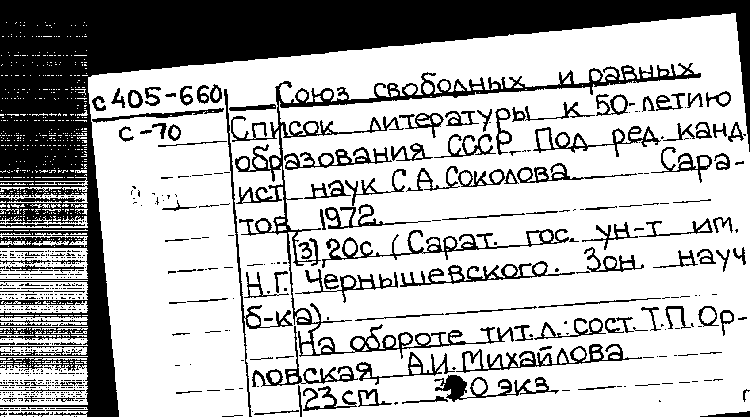 с 405-660 Союз свободных и равных
с-70 Список литературы к 50-летию
образования СССР. Под ред. канд
ист наук С.А. Соколова Сара-
тов, 1972.
[3], 20с. (Сарат. гос. ун-т им.
Н.Г. Чернышевского. Зон. науч
б-ка).
На обороте тит. л.: сост. Т.П. Ор-
ловская, А.И. Михайлова
23 cm. экз.